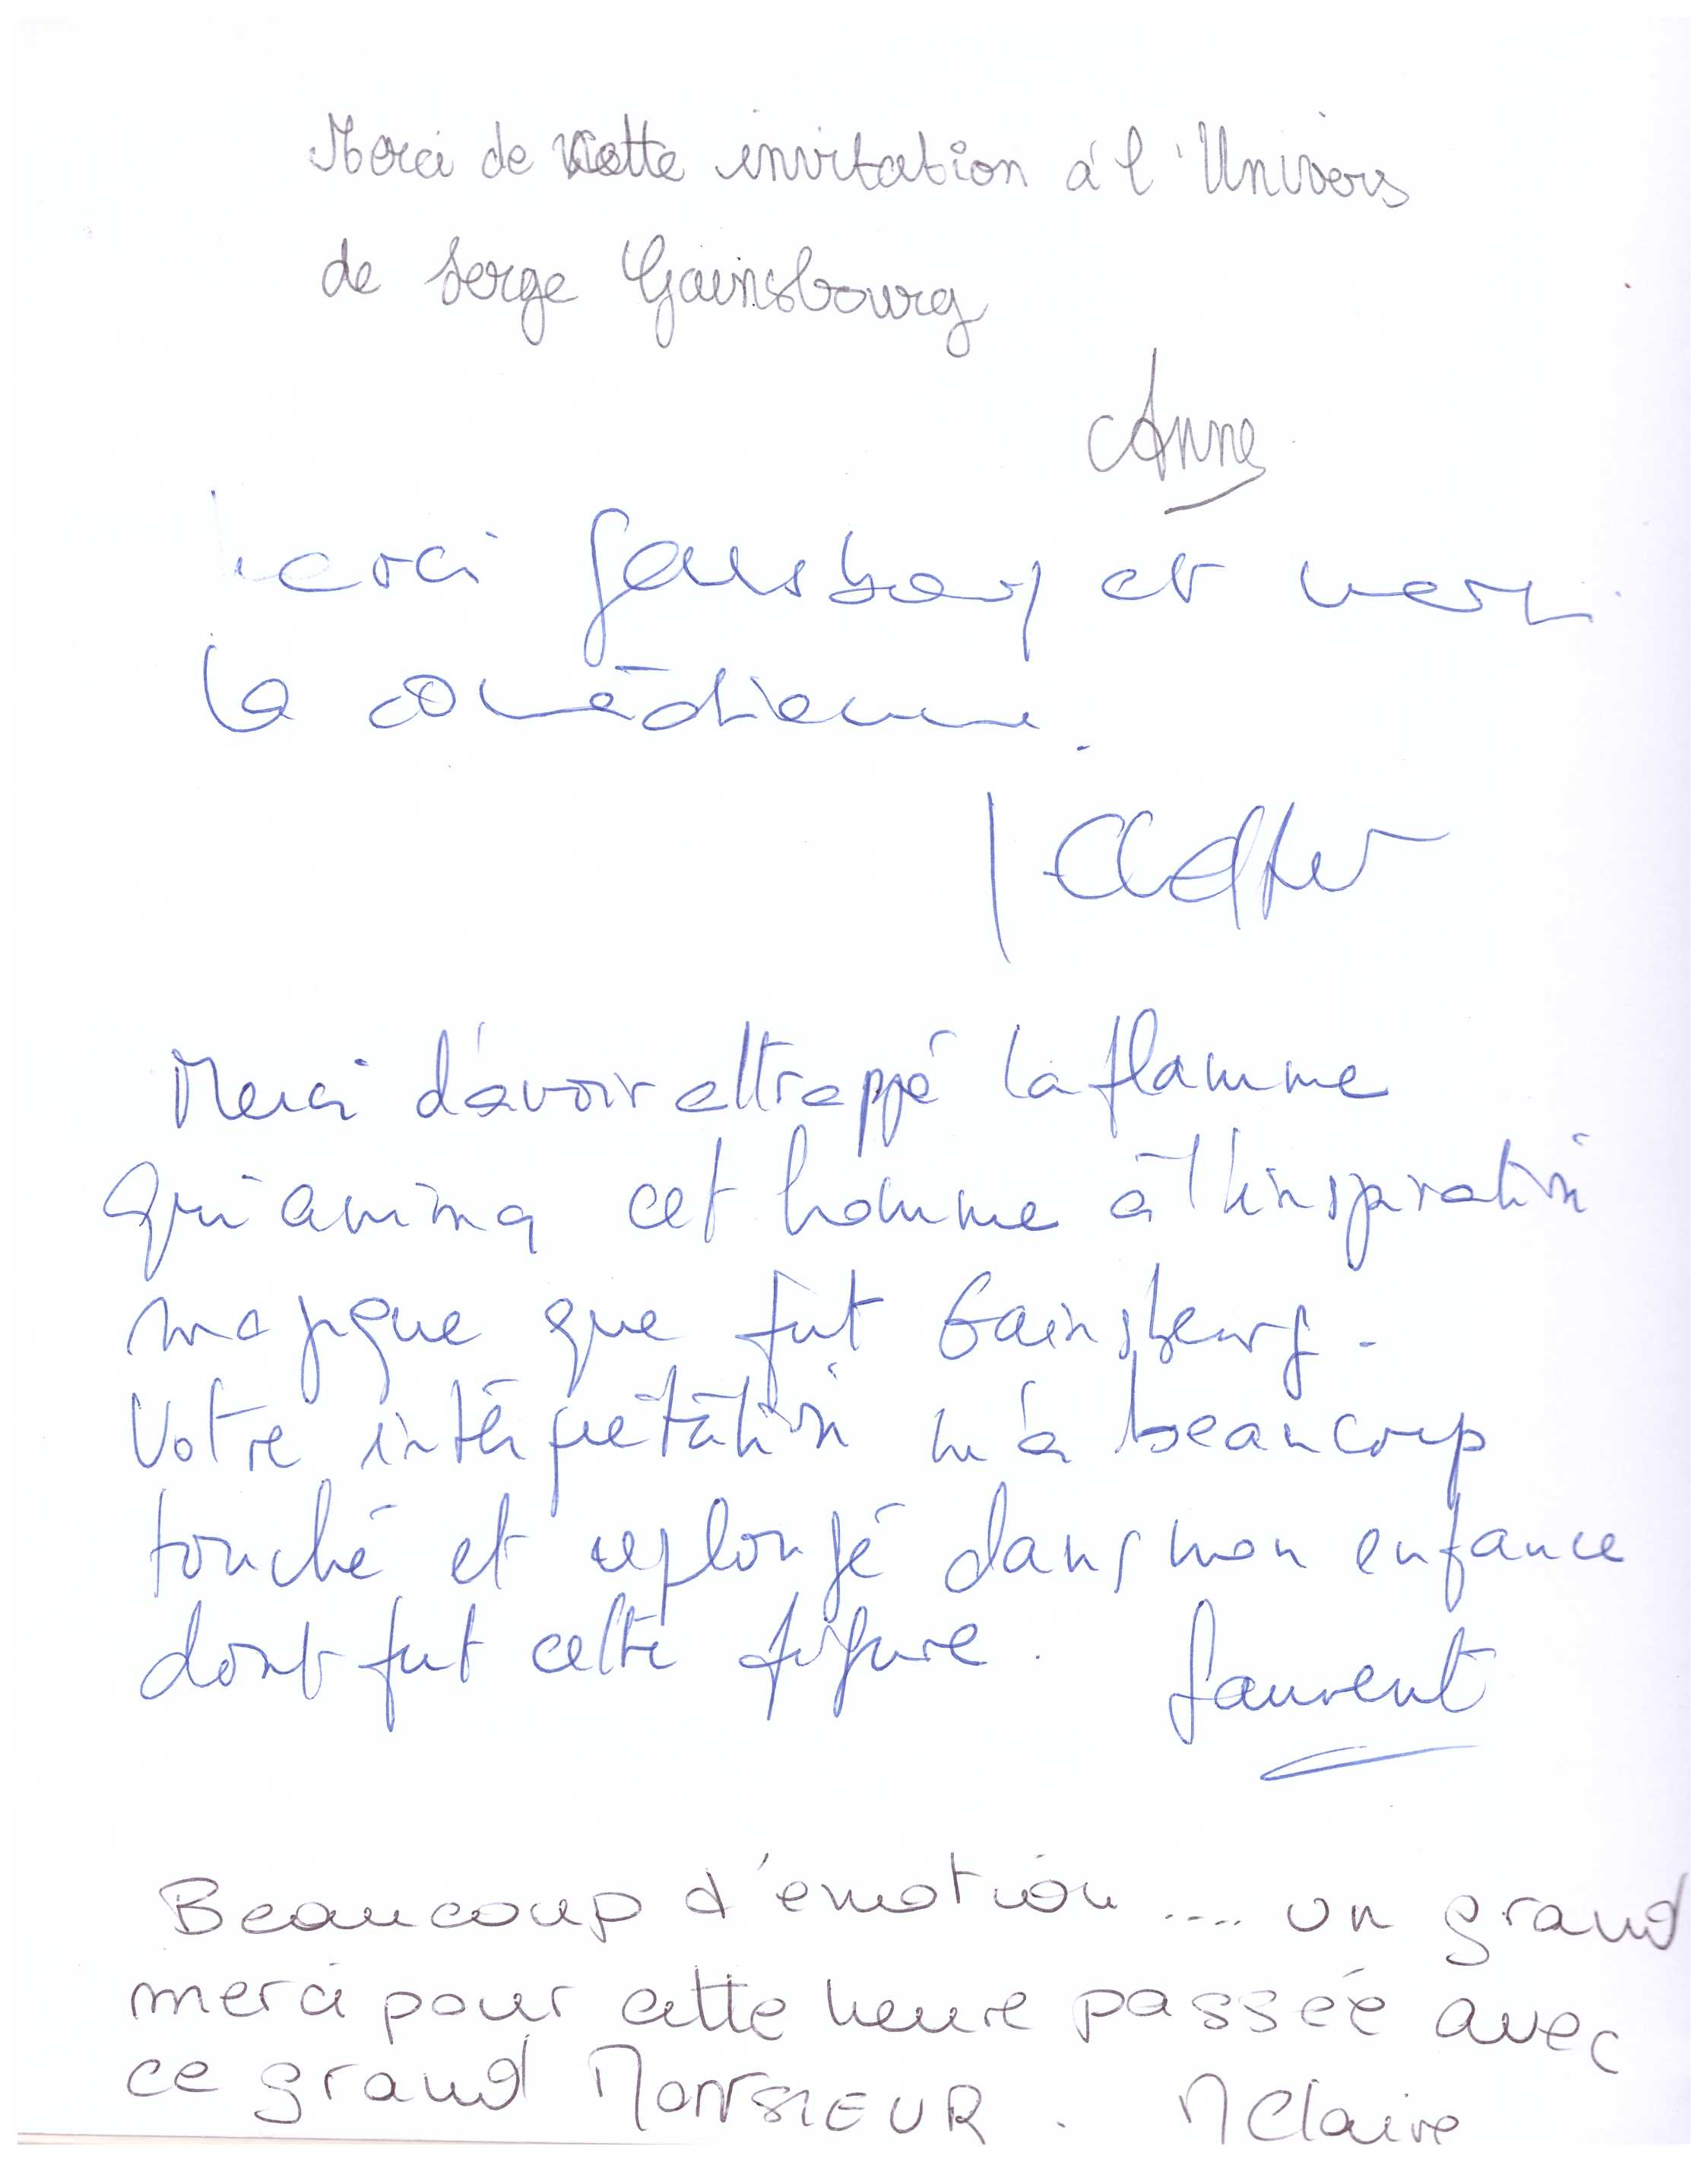 Merci de cette invitation à l'Univers
de Serge Gainsbourg
Anne
Merci Gainsbourg et merci
la comédienne.
Merci d'avoir attrappé la flamme
qui anima cet homme à l'inspiration
magique que fut Gainsbourg.
Votre intérprétation m'a beaucoup
touché et replongé dans mon enfance
dont fut cette figure.
Laurent
Beaucoup d'émotion .... un grand
merci pour cette heure passée avec
ce grand MONSIEUR. MClaire